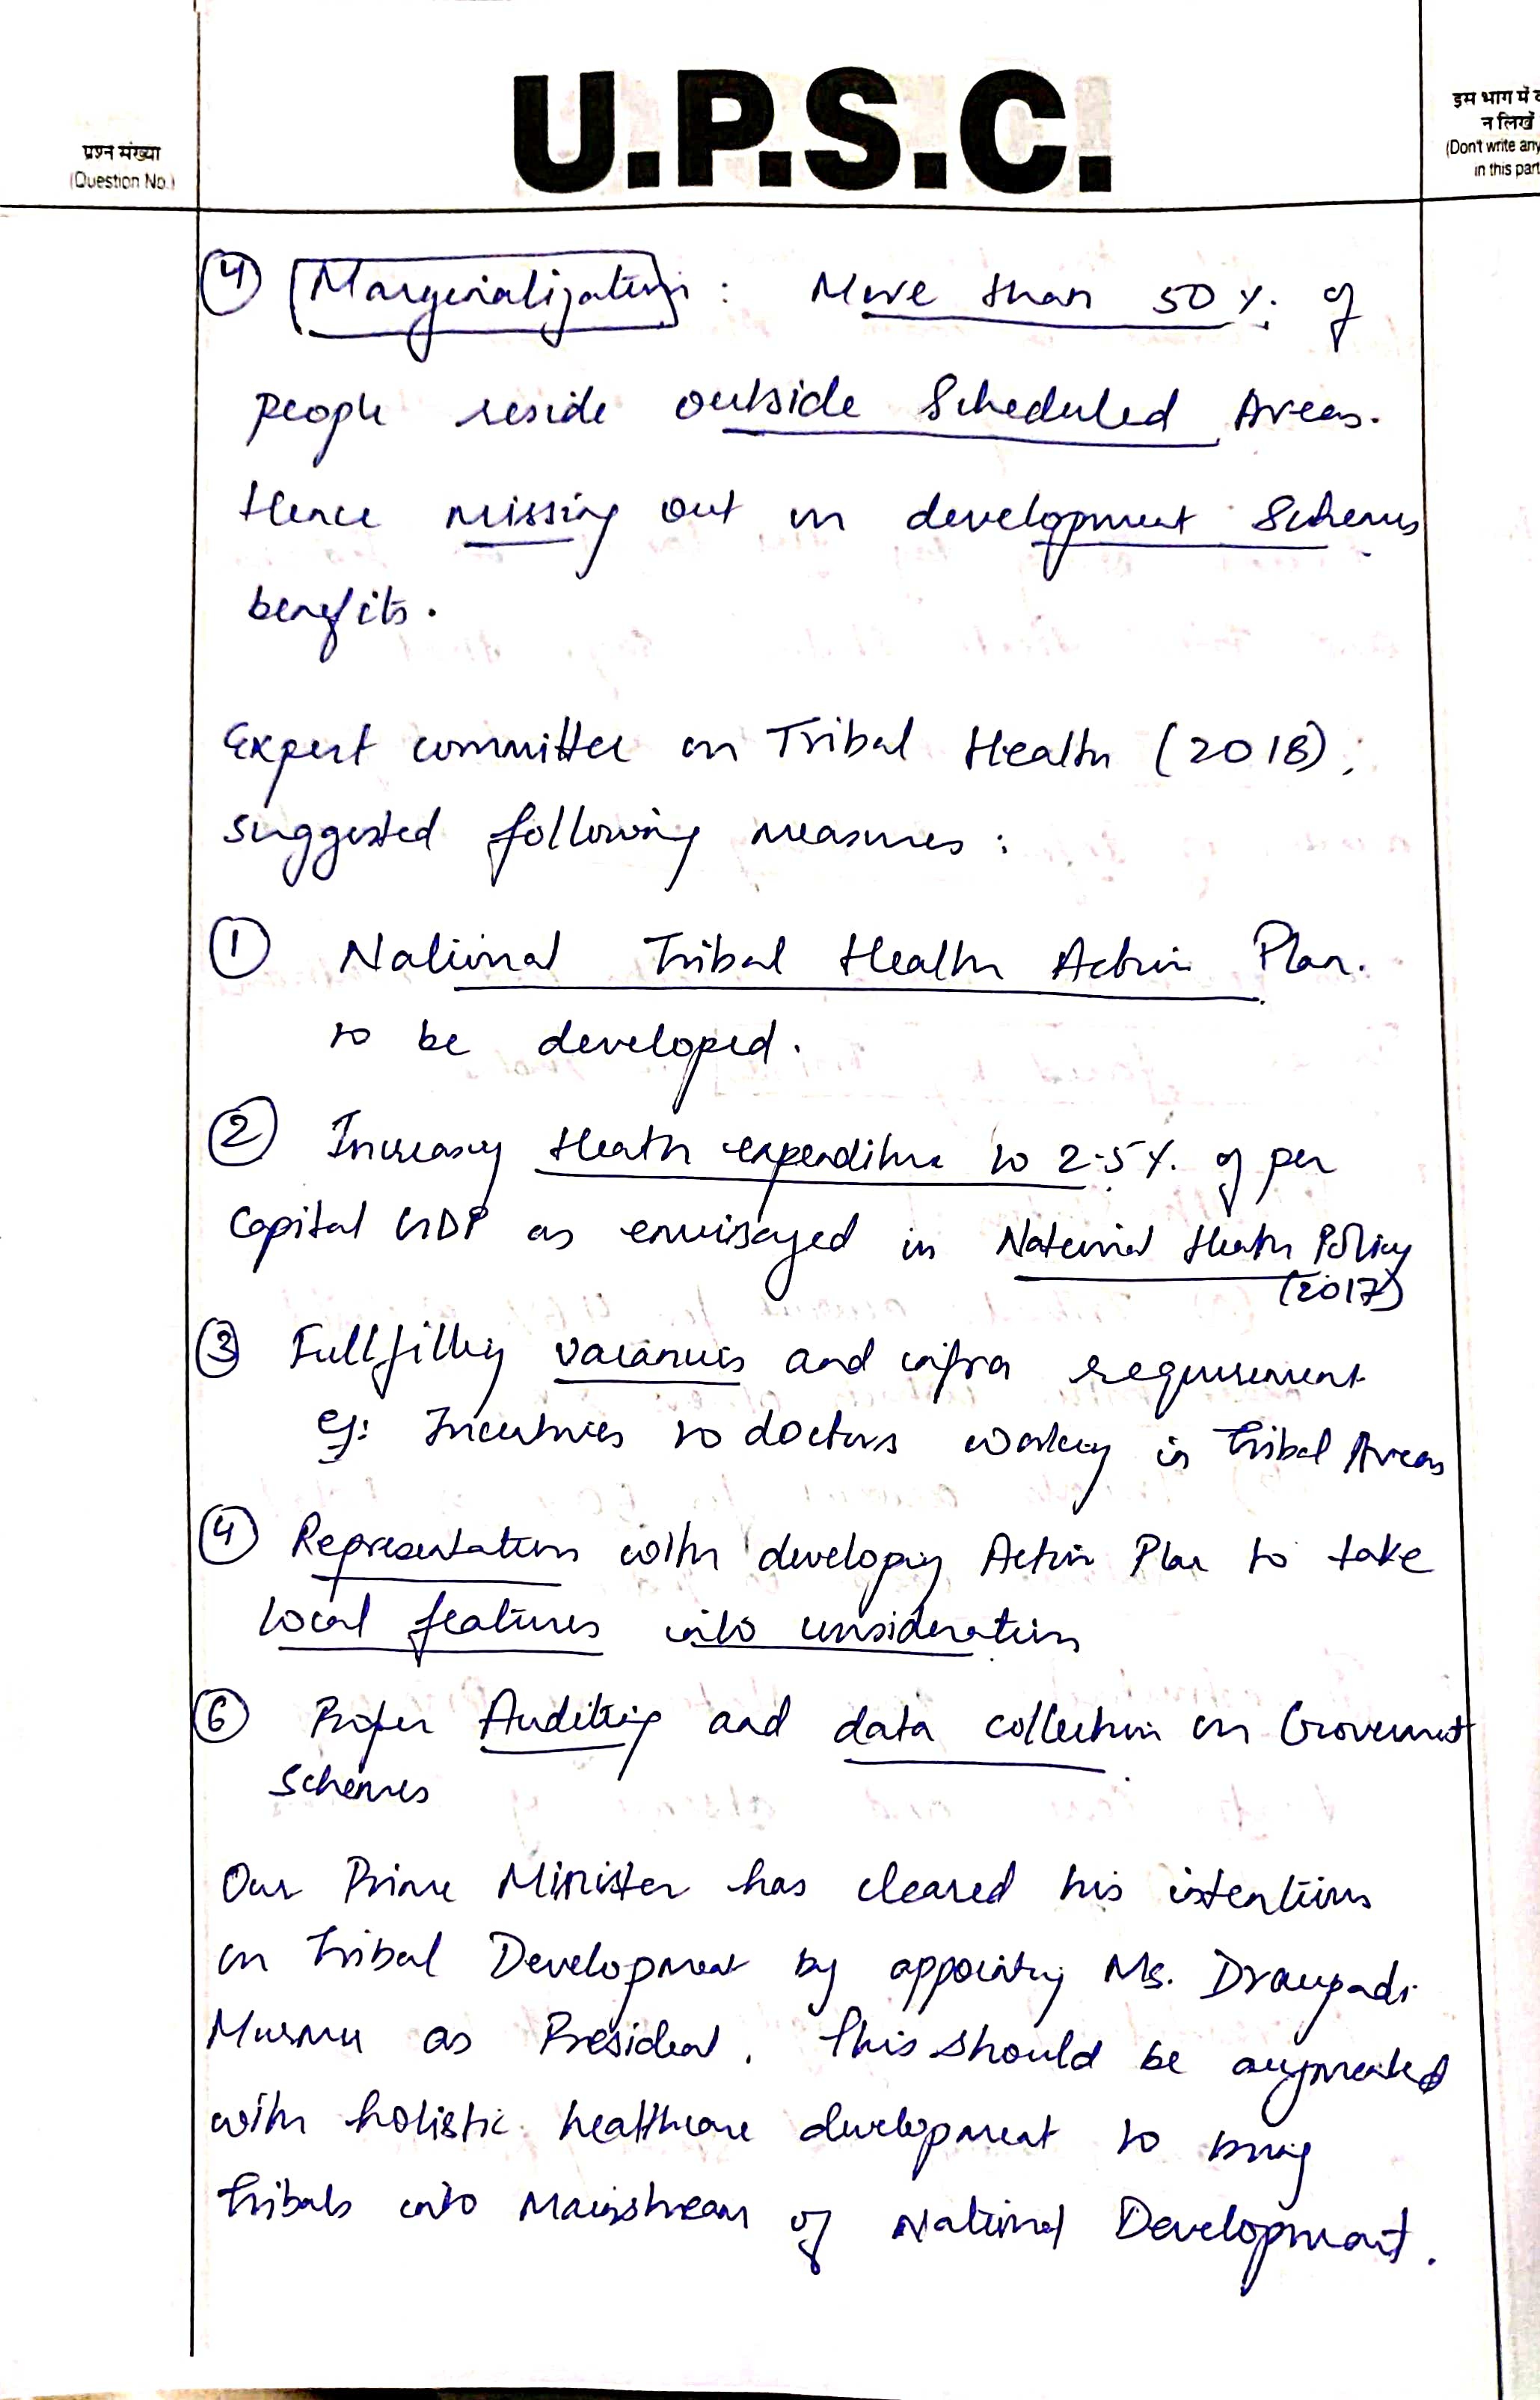 U.P.S.C.
प्रश्न संख्या
(Question No.)
इस भाग में
न लिखें
(Don't write any
in this part
④ Marginalization : More than 50 % of
people reside outside Scheduled Areas.
Hence missing out on development Schemes
benefits.
Expert committee on Tribal Health (2018);
suggested following measures :
① National Tribal Health Action Plan.
to be developed.
② Increasing Health expenditure to 2.5 %. of per
Capital GDP as envisaged in National Health Policy
(2017)
③ Fullfilling vacancies and infra requirement
eg: Incentives to doctors working in Tribal Areas
④ Representations with developing Action Plan to take
local features into consideration
⑥ Proper Auditing and data collection on Government
Schemes
Our Prime Minister has cleared his intentions
on Tribal Development by appointing Ms. Draupadi
Murmu as President. This should be augmented
with holistic healthcare development to bring
tribals into Mainstream of National Development.